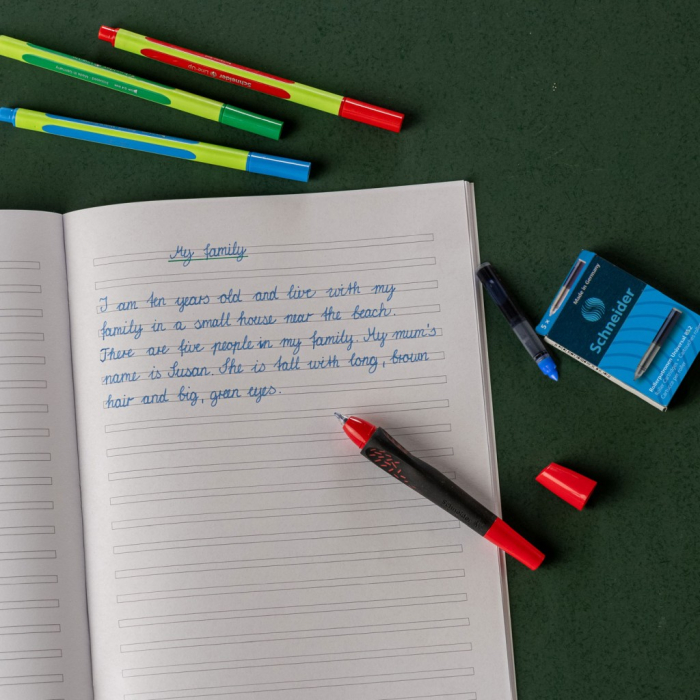 Schneider Line-Up
My family
I am ten years old and live with my
family in a small house near the beach.
There are five people in my family. My mum's
name is Susan. She is tall with long, brown
hair and big, green eyes.
5 x
Made in Germany
Schneider